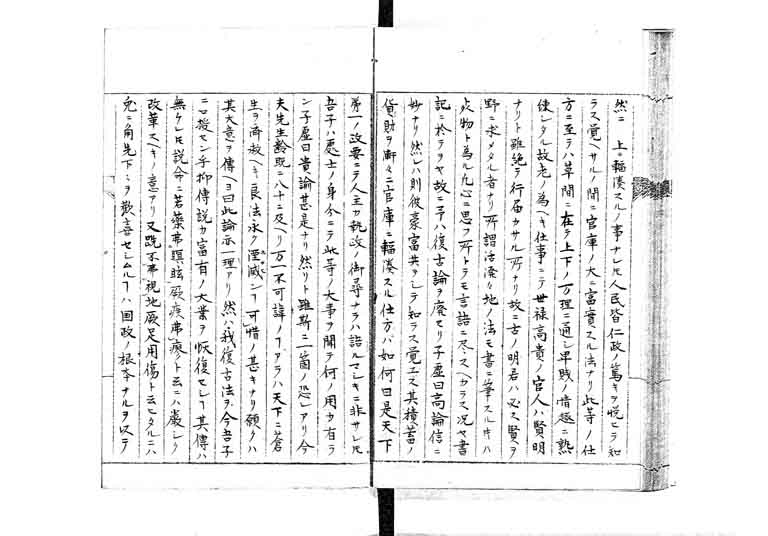 然ニ 上ニ輻湊スルノ事ナレ𪜈人民皆仁政ノ篤キヲ悦ヒテ知
ラス覚ヘサルノ間ニ官庫ノ大ニ富實スル法ナリ此等ノ仕
方ニ至テハ草間ニ在テ上下ノ万理ニ通シ卑賤ノ情趣ニ熟
使シタル故老ノ為ヘキ仕事ニテ世禄高貴ノ官人ハ賢明
ナリト雖絶テ行届カサル所ナリ故ニ古ノ明君ハ必ス賢ヲ
野ニ求メタル者ナリ所謂活溌々地ノ法モ書ニ筆スル𪜈ハ
物ト為ル凡心ニ思フ所トテモ言語ニ尽スヘカラス况ヤ書
記ニ於テヲヤ故ニ予ハ復古論ヲ廃セリ子虚曰高論信ニ
妙ナリ然レハ則彼豪富共ヲシテ知ラス覚エス其積蓄ノ
貨財ヲ漸々ニ官庫ニ輻湊スル仕方ハ如何曰是天下
第一ノ政要ニテ人主カ執政ノ御尋ナラハ語ルマシキニ非サレ𪜈
吾子ハ處士ノ身分ニテ此等ノ大事ヲ聞テ何ノ用カ有ラ
ン子虚曰貴論甚是ナリ然リト雖斯ニ一箇ノ恐レアリ今
夫先生齢既ニ八十ニ及ヘリ万一不可諱ノヿアラハ天下ニ蒼
生ヲ済救ヘキ良法永ク湮滅センヿ可惜ノ甚キナリ願クハ
其大意ヲ傳ヘヨ曰此論亦一理アリ然ハ我復古法ヲ今吾子
ニ授セン乎抑傳説カ富有ノ大業ヲ恢復セシヿ其傳ハ
無ケレ𪜈説命ニ若藥弗瞑眩厥疾弗瘳ト云ニハ嚴シク
改革スヘキノ意アリ又跣不弗視地厥足用傷ト云ヒタルニハ
兎ニ角先下々ヲ歓喜セシムルヿハ国政ノ根本ナルヲ以テ